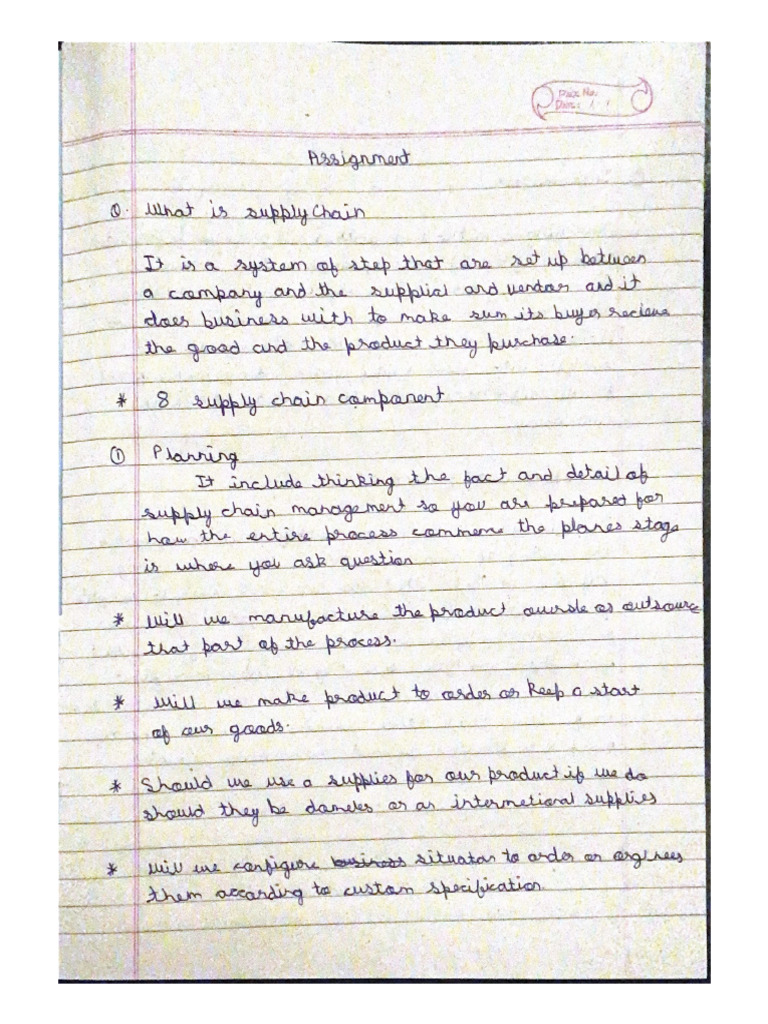 Page No.
Date: / /
Assignment
Q. What is supply chain
It is a system of step that are set up between
a company and the supplial and vendor and it
does business with to make sum its buyer recieve
the good and the product they purchase.
* 8 supply chain companent
① Planning
It include thinking the fact and detail of
supply chain management so you are prepared for
how the entire process commene the planes stage
is where you ask question
* Will we manufacture the product or outsource
that part of the process.
* Will we make product to order or keep a start
of our goods.
* Should we use a supplies for our product if we do
should they be or as internetional supplies
* Will we configure business situaton to order or
them according to custom specification.